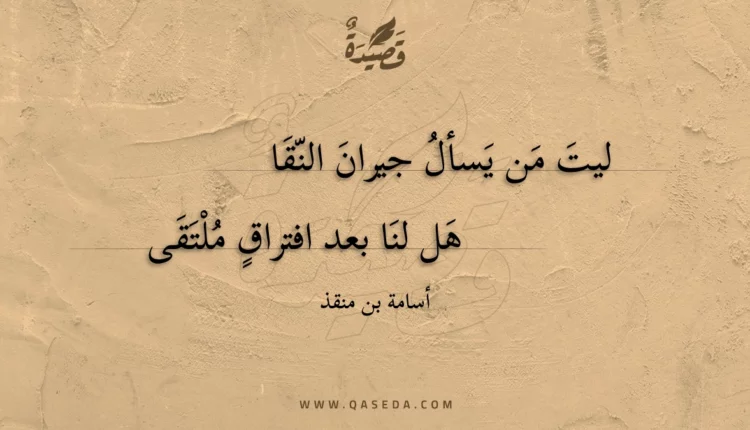 قَصِيْدَةٌ
ليتَ مَن يَسألُ جيرانَ النّقَا
هَل لنَا بعد افتراقٍ مُلْتَقَى
أسامة بن منقذ
WWW.QASEDA.COM